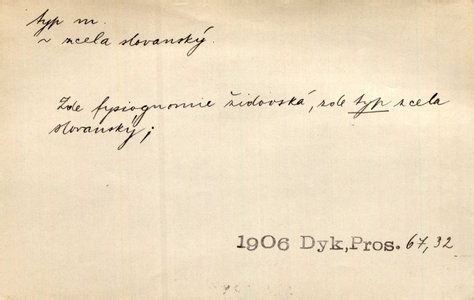 typ m.
~ zcela slovanský.
Zde fysiognomie židovská, zde typ zcela
slovanský;
1906 Dyk, Pros. 67,32